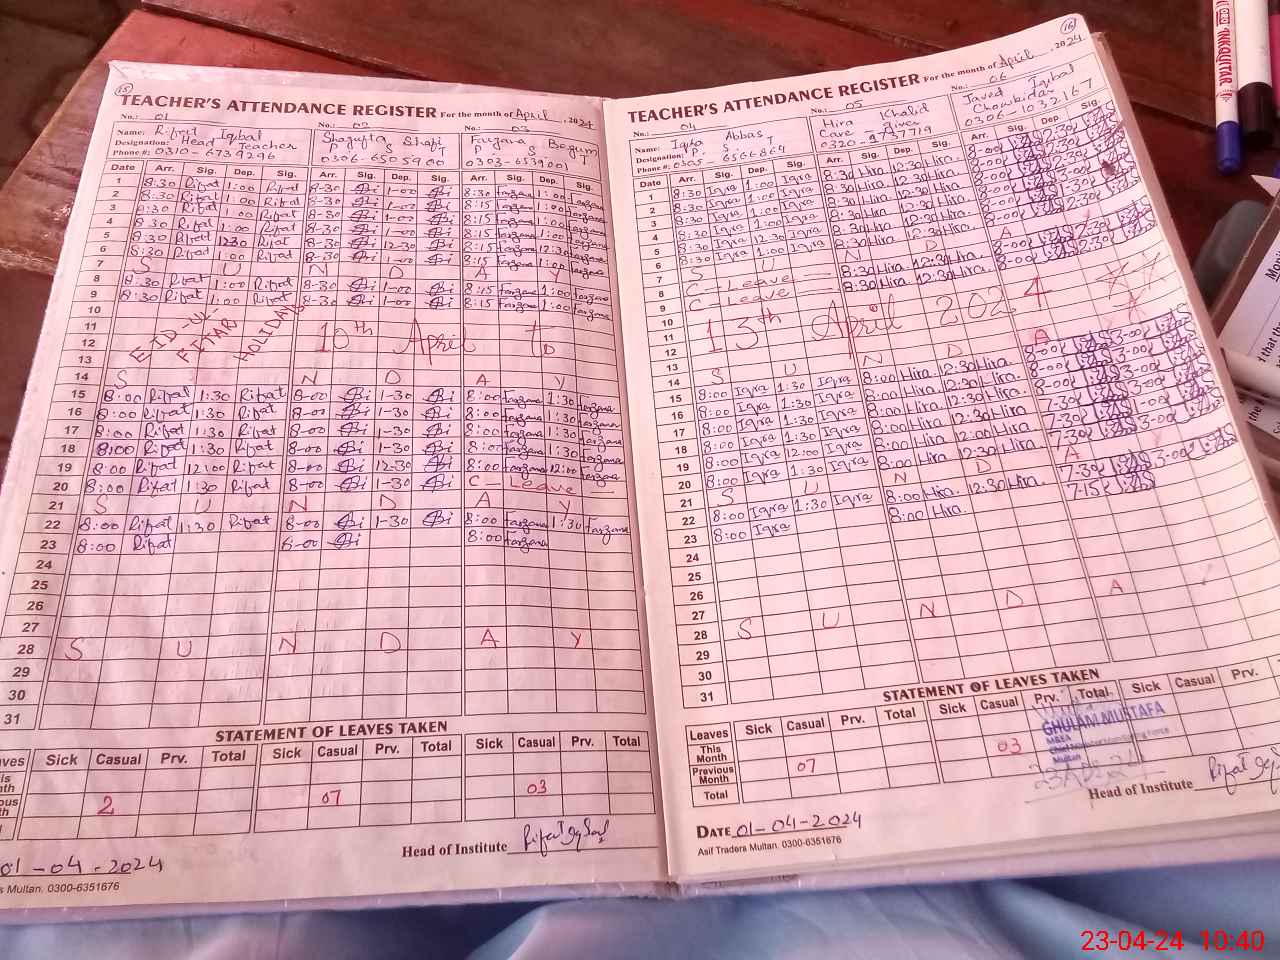 15
TEACHER'S ATTENDANCE REGISTER For the month of April, 2024
No.: 01 No.: 02 No.: 03
Name: Rifat Iqbal Shagufta Shafi Farzana Begum
Designation: Head Teacher P S T P S T
Phone #: 0310-6739296 0306-6505900 0303-6539001
Date Arr. Sig. Dep. Sig. Arr. Sig. Dep. Sig. Arr. Sig. Dep. Sig.
1 8:30 Rifat 1:00 Rifat 8-30 1-00 8:30 Farzana 1:00 Farzana
2 8:30 Rifat 1:00 Rifat 8-30 1-00 8:15 Farzana 1:00 Farzana
3 8:30 Rifat 1:00 Rifat 8-30 1-00 8:15 Farzana 1:00 Farzana
4 8:30 Rifat 1:00 Rifat 8-30 1-00 8:15 Farzana 1:00 Farzana
5 8:30 Rifat 12:30 Rifat 8-30 12-30 8:15 Farzana 12:30 Farzana
6 8:30 Rifat 1:00 Rifat 8-30 1-00 8:15 Farzana 1:00 Farzana
7 S U N D A Y
8 8:30 Rifat 1:00 Rifat 8-30 1-00 8:15 Farzana 1:00 Farzana
9 8:30 Rifat 1:00 Rifat 8-30 1-00 8:15 Farzana 1:00 Farzana
10
11 EID-UL-FITAR HOLIDAYS 10th April to
12
13
14 S U N D A Y
15 8:00 Rifat 1:30 Rifat 8-00 1-30 8:00 Farzana 1:30 Farzana
16 8:00 Rifat 1:30 Rifat 8-00 1-30 8:00 Farzana 1:30 Farzana
17 8:00 Rifat 1:30 Rifat 8-00 1-30 8:00 Farzana 1:30 Farzana
18 8:00 Rifat 1:30 Rifat 8-00 1-30 8:00 Farzana 1:30 Farzana
19 8:00 Rifat 12:00 Rifat 8-00 12-30 8:00 Farzana 12:00 Farzana
20 8:00 Rifat 1:30 Rifat 8-00 1-30 C-Leave
21 S U N D A Y
22 8:00 Rifat 1:30 Rifat 8-00 1-30 8:00 Farzana 1:30 Farzana
23 8:00 Rifat 8-00 8:00 Farzana
24
25
26
27
28 S U N D A Y
29
30
31
STATEMENT OF LEAVES TAKEN
Sick Casual Prv. Total Sick Casual Prv. Total Sick Casual Prv. Total
2 07 03
Head of Institute Rifat Iqbal
01-04-2024
Multan. 0300-6351676
16
TEACHER'S ATTENDANCE REGISTER For the month of April, 2024
No.: 04 No.: 05 No.: 06
Name: Iqra Abbas Hira Khalid Javed Iqbal
Designation: P. S. T Care Giver Chowkidar
Phone #: 0305-6566869 0320-9737719 0306-1032167
Date Arr. Sig. Dep. Sig. Arr. Sig. Dep. Sig. Arr. Sig. Dep. Sig.
1 8:30 Iqra 1:00 Iqra 8:30 Hira 12:30 Hira. 8-00 2-30
2 8:30 Iqra 1:00 Iqra 8:30 Hira 12:30 Hira. 8-00 2-30
3 8:30 Iqra 1:00 Iqra 8:30 Hira 12:30 Hira. 8-00
4 8:30 Iqra 1:00 Iqra 8:30 Hira 12:30 Hira. 8-00 2-30
5 8:30 Iqra 12:30 Iqra 8:30 Hira 12:30 Hira. 8-00
6 8:30 Iqra 1:00 Iqra 8:30 Hira 12:30 Hira. 8-00 2-30
7 S U N D A
8 C-Leave 8:30 Hira. 12:30 Hira. 8-00 2-30
9 C-Leave 8:30 Hira. 12:30 Hira. 8-00 2-30
10
11 13th April 2024
12
13
14 S U N D A
15 8:00 Iqra 1:30 Iqra 8:00 Hira. 12:30 Hira. 8-00 3-00
16 8:00 Iqra 1:30 Iqra 8:00 Hira. 12:30 Hira. 8-00 3-00
17 8:00 Iqra 1:30 Iqra 8:00 Hira. 12:30 Hira. 8-00 3-00
18 8:00 Iqra 1:30 Iqra 8:00 Hira. 12:30 Hira. 7-30 3-00
19 8:00 Iqra 12:00 Iqra 8:00 Hira. 12:00 Hira 7-30
20 8:00 Iqra 1:30 Iqra 8:00 Hira. 12:30 Hira. 7-30 3-00
21 S U N D A
22 8:00 Iqra 1:30 Iqra 8:00 Hira. 12:30 Hira. 7-30 3-00
23 8:00 Iqra 8:00 Hira. 7-15
24
25
26
27
28 S U N D A
29
30
31
STATEMENT OF LEAVES TAKEN
Leaves Sick Casual Prv. Total Sick Casual Prv. Total Sick Casual Prv.
This Month
Previous Month 07 03
Total
GHULAM MUSTAFA
M&EA
Multan
Head of Institute Rifat Iqbal
DATE 01-04-2024
Asif Traders Multan. 0300-6351676
INKQUITAR
23-04-24 10:40